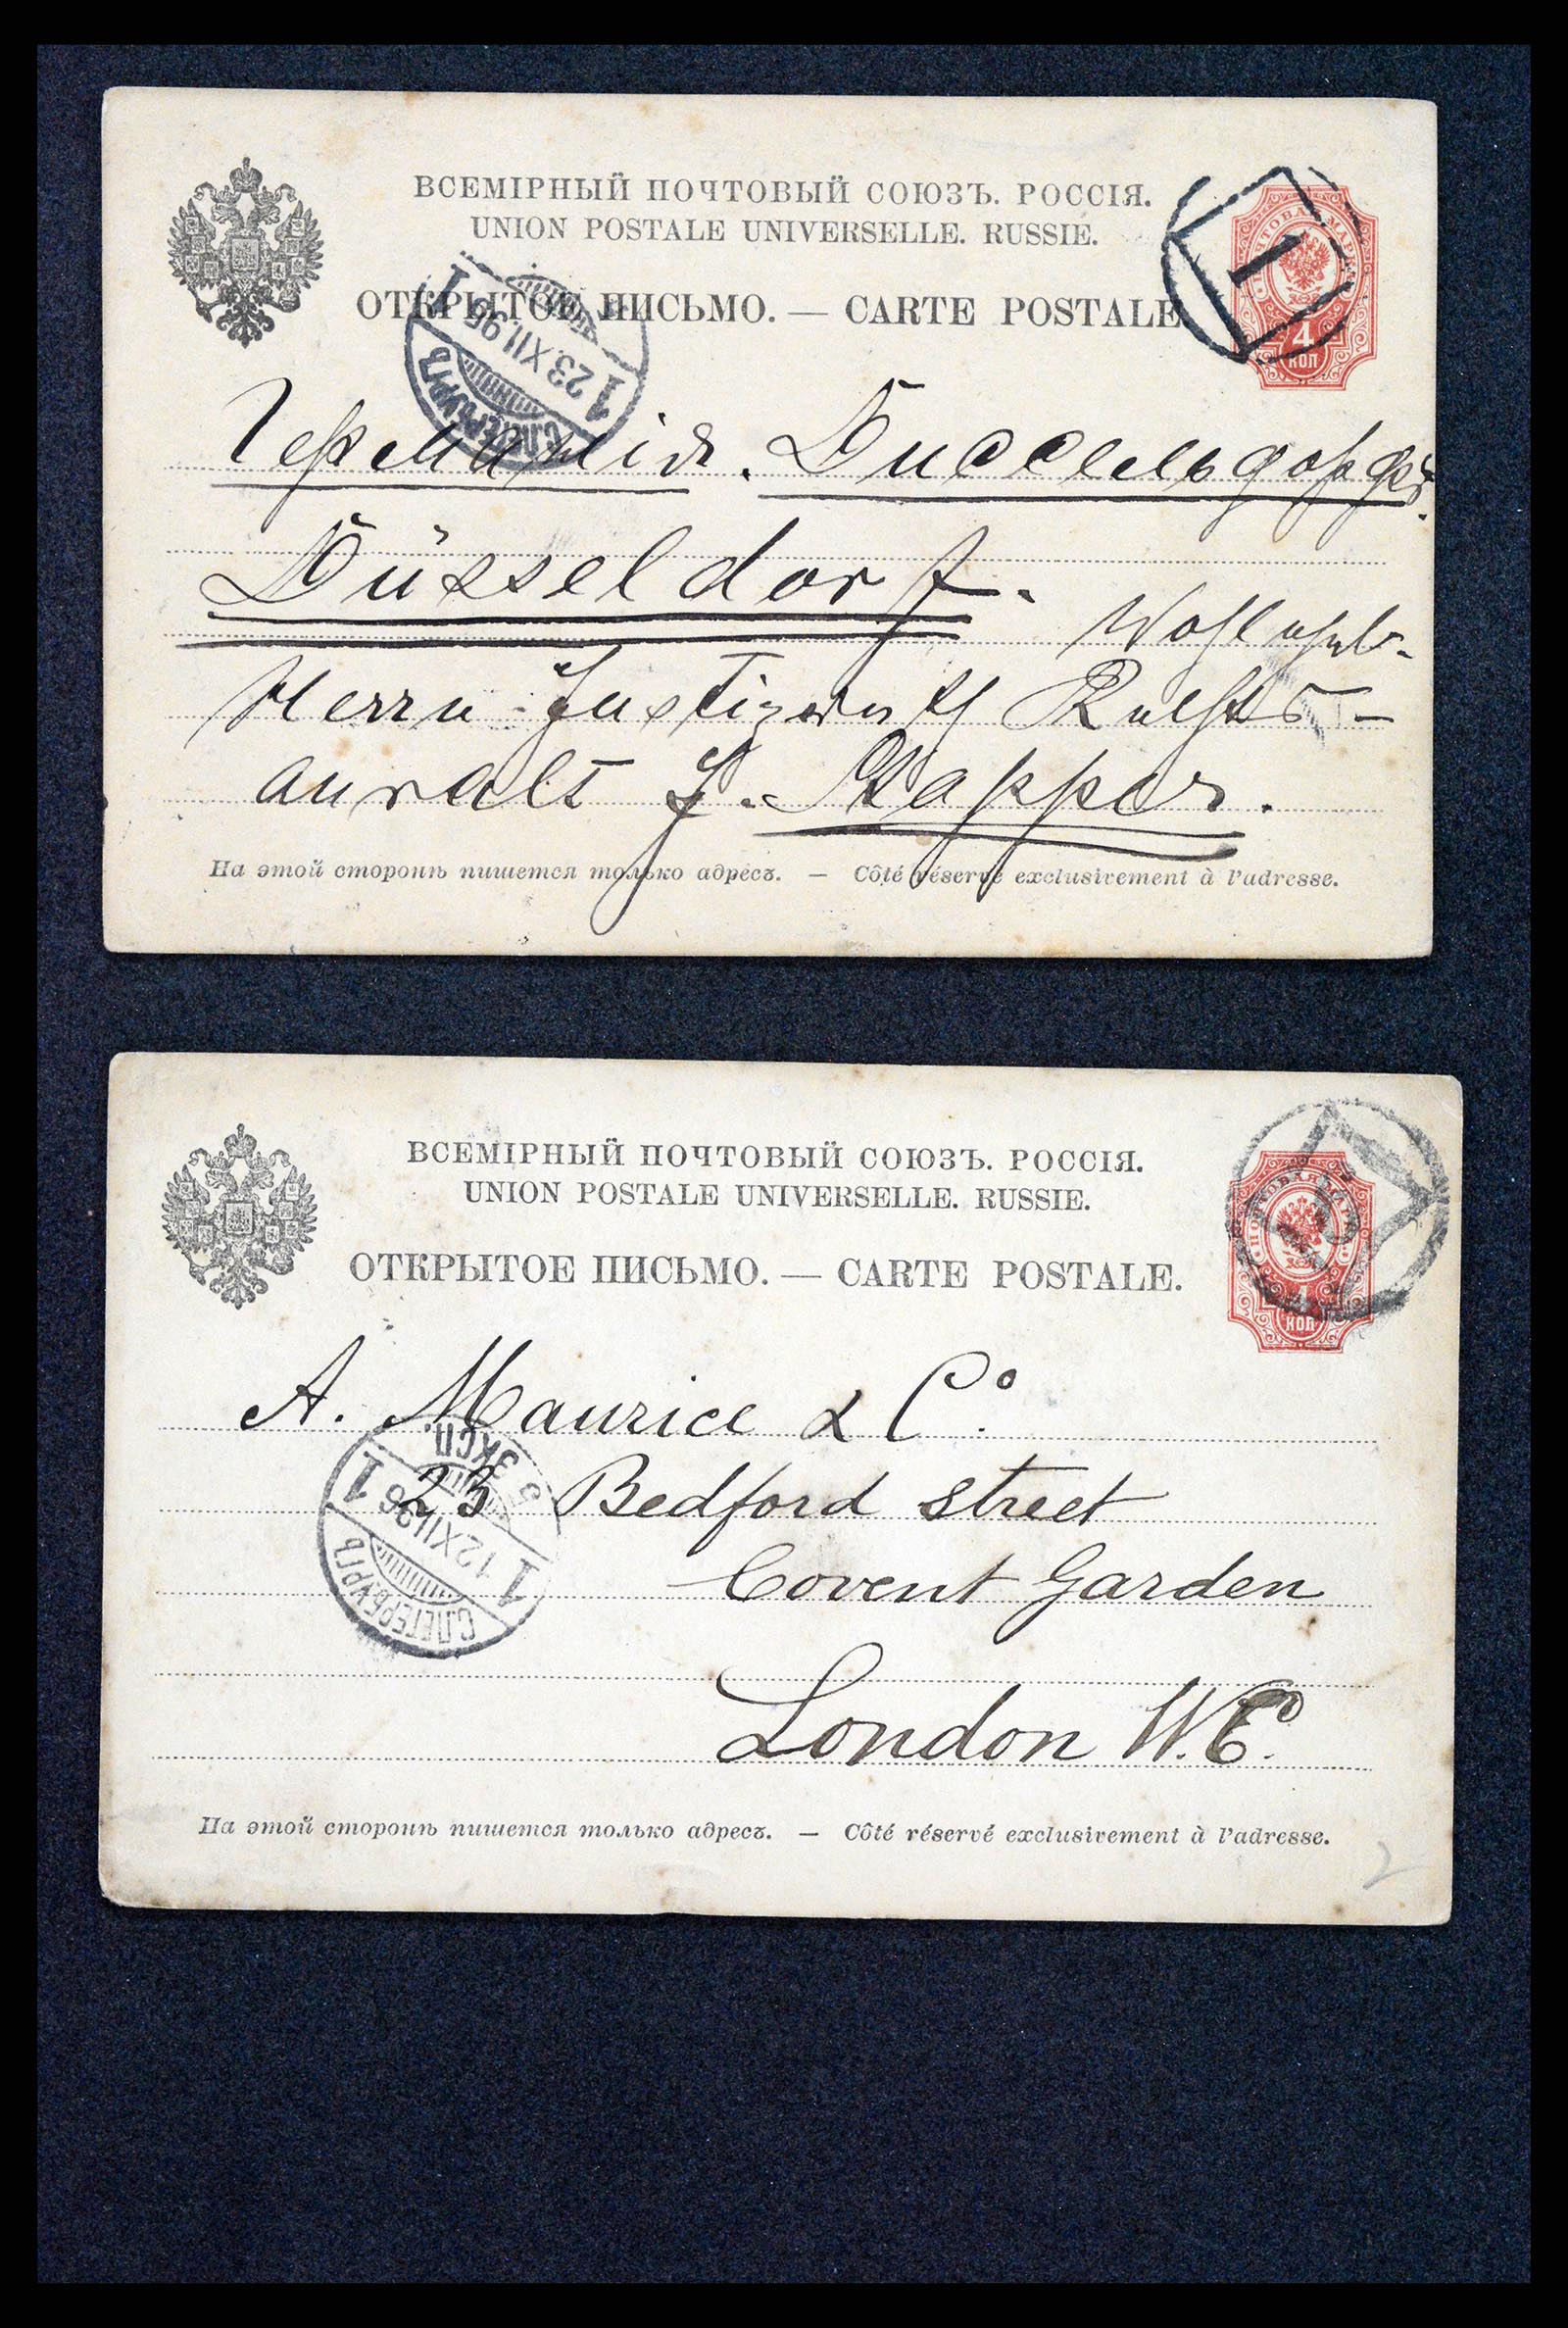 ВСЕМІРНЫЙ ПОЧТОВЫЙ СОЮЗЪ. РОССІЯ.
UNION POSTALE UNIVERSELLE. RUSSIE.
ОТКРЫТОЕ ПИСЬМО. — CARTE POSTALE.
ПОЧТОВАЯ МАРКА
4
КОП
1
С.ПЕТЕРБУРГЪ
1 23.XII.95 1
Германія. Дюссельдорфъ.
Düsseldorf.
Herrn Justizrath Rechts-
anwalt J.
На этой сторонѣ пишется только адресъ. — Côté réservé exclusivement à l'adresse.
ВСЕМІРНЫЙ ПОЧТОВЫЙ СОЮЗЪ. РОССІЯ.
UNION POSTALE UNIVERSELLE. RUSSIE.
ОТКРЫТОЕ ПИСЬМО. — CARTE POSTALE.
ПОЧТОВАЯ МАРКА
4
КОП
A. Maurice & Co.
23 Bedford street
Covent Garden
London W.C.
С.ПЕТЕРБУРГЪ
1 12XII96 1
ЭКСП.
На этой сторонѣ пишется только адресъ. — Côté réservé exclusivement à l'adresse.
2